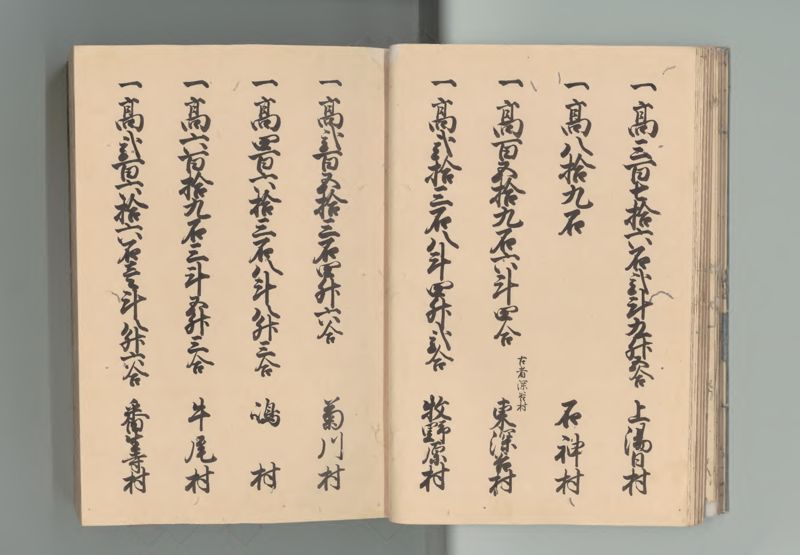 一高三百七拾六石弐斗九升五合 上湯日村
一高八拾九石 石神村
一高百五拾九石六斗四合 東深谷村
古者深谷村
一高弐拾三石八斗四升弐合 牧野原村
一高弐百五拾三石四升六合 菊川村
一高四百六拾三石八斗八升三合 嶋村
一高六百拾九石三斗五升三合 牛尾村
一高弐百六拾六石壱斗八升六合 番生寺村